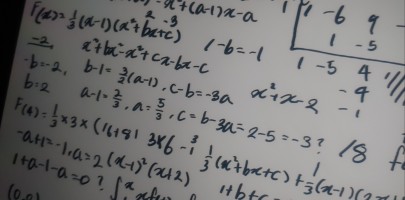 -x²+(a-1)x-a
F(x)=1/3(x-1)(x²+bx+c)
2 -3
-2, x³+bx²-x²+cx-bx-c
1-b=-1
-b=-2, b-1=3/2(a-1), c-b=-3a
x²+x-2
b=2 a-1=2/3, a=5/3, c=b-3a=2-5=-3?
F(4)=1/3×3×(16+8)
1/3(x²+bx+c)+1/3(x-1)(2x
18
-a+1=-1, a=2 (x-1)²(x+2)
1+a-1-a=0?
1+b+c
1 1 -6 9
1 -5
1 -5 4
-4
-1